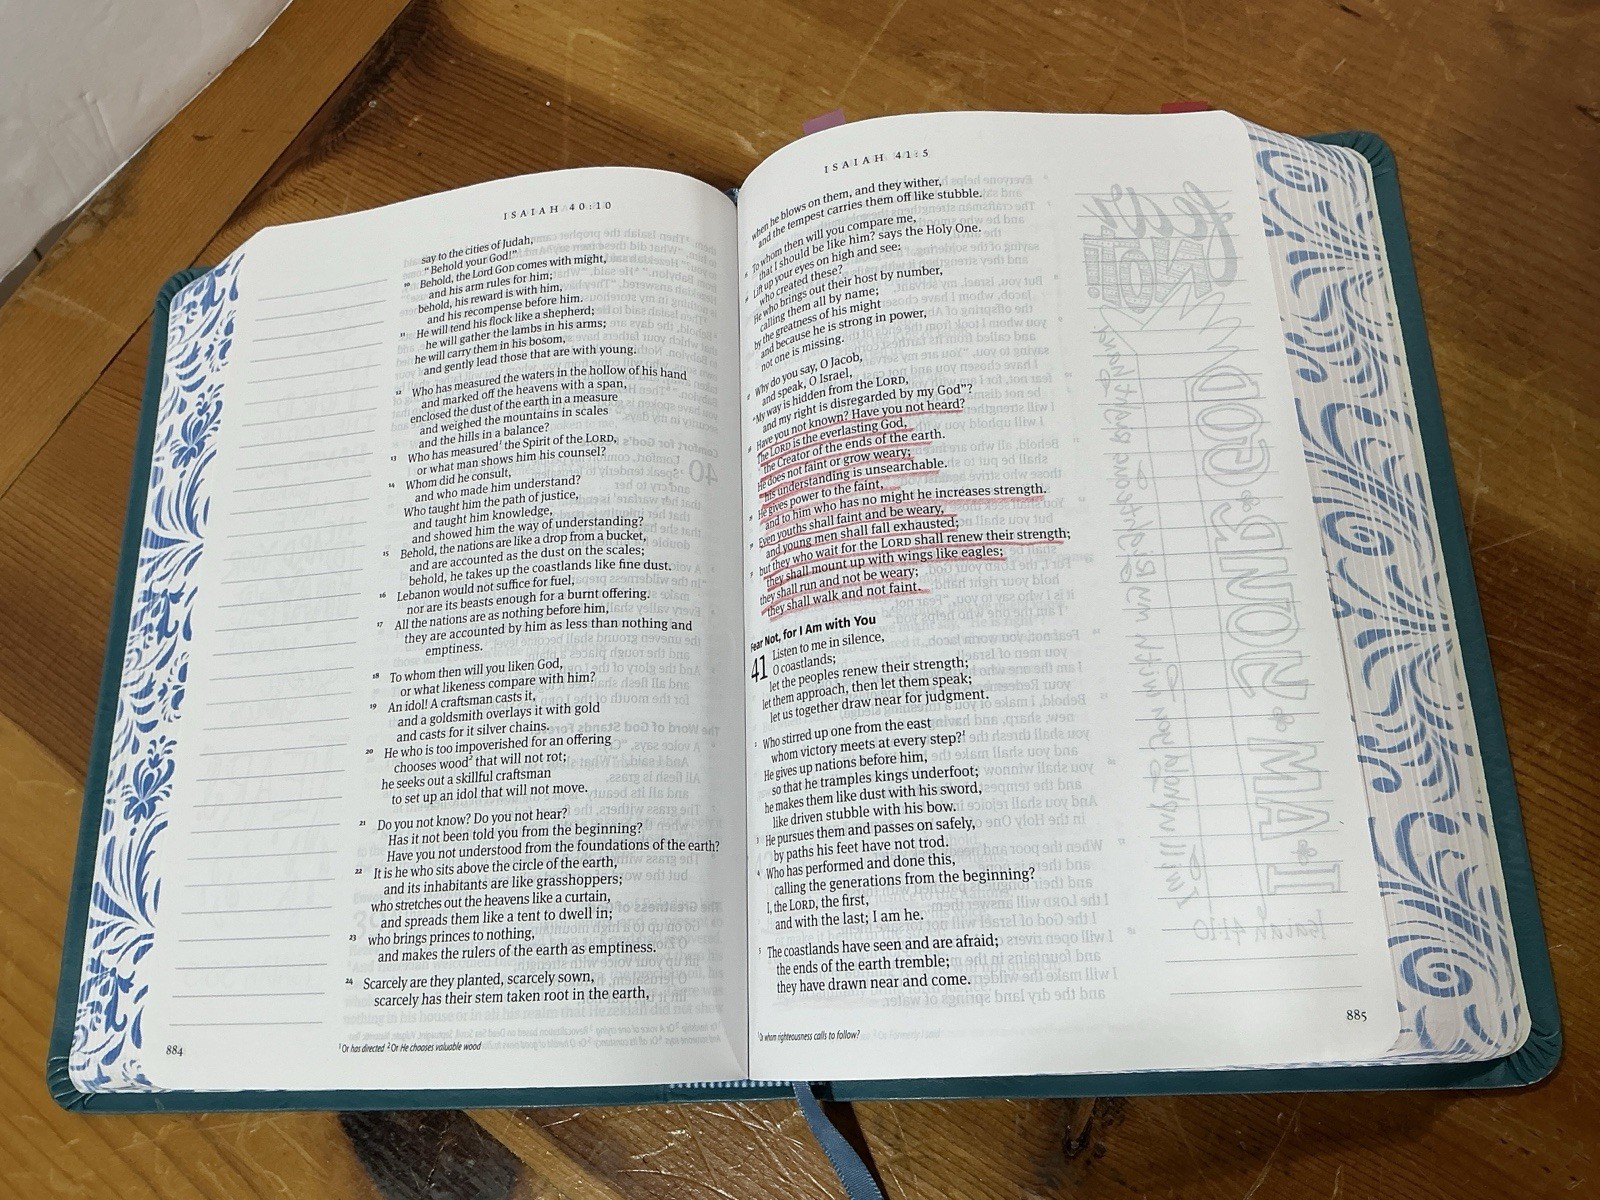 ISAIAH 40:10
say to the cities of Judah,
"Behold your God!"
10 Behold, the Lord GOD comes with might,
and his arm rules for him;
behold, his reward is with him,
and his recompense before him.
11 He will tend his flock like a shepherd;
he will gather the lambs in his arms;
he will carry them in his bosom,
and gently lead those that are with young.
12 Who has measured the waters in the hollow of his hand
and marked off the heavens with a span,
enclosed the dust of the earth in a measure
and weighed the mountains in scales
and the hills in a balance?
13 Who has measured¹ the Spirit of the LORD,
or what man shows him his counsel?
14 Whom did he consult,
and who made him understand?
Who taught him the path of justice,
and taught him knowledge,
and showed him the way of understanding?
15 Behold, the nations are like a drop from a bucket,
and are accounted as the dust on the scales;
behold, he takes up the coastlands like fine dust.
16 Lebanon would not suffice for fuel,
nor are its beasts enough for a burnt offering.
17 All the nations are as nothing before him,
they are accounted by him as less than nothing and
emptiness.
18 To whom then will you liken God,
or what likeness compare with him?
19 An idol! A craftsman casts it,
and a goldsmith overlays it with gold
and casts for it silver chains.
20 He who is too impoverished for an offering
chooses wood² that will not rot;
he seeks out a skillful craftsman
to set up an idol that will not move.
21 Do you not know? Do you not hear?
Has it not been told you from the beginning?
Have you not understood from the foundations of the earth?
22 It is he who sits above the circle of the earth,
and its inhabitants are like grasshoppers;
who stretches out the heavens like a curtain,
and spreads them like a tent to dwell in;
23 who brings princes to nothing,
and makes the rulers of the earth as emptiness.
24 Scarcely are they planted, scarcely sown,
scarcely has their stem taken root in the earth,
¹ Or has directed ² Or He chooses valuable wood
884
ISAIAH 41:5
when he blows on them, and they wither,
and the tempest carries them off like stubble.
25 To whom then will you compare me,
that I should be like him? says the Holy One.
26 Lift up your eyes on high and see:
who created these?
He who brings out their host by number,
calling them all by name;
by the greatness of his might
and because he is strong in power,
not one is missing.
27 Why do you say, O Jacob,
and speak, O Israel,
"My way is hidden from the LORD,
and my right is disregarded by my God"?
28 Have you not known? Have you not heard?
The LORD is the everlasting God,
the Creator of the ends of the earth.
He does not faint or grow weary;
his understanding is unsearchable.
29 He gives power to the faint,
and to him who has no might he increases strength.
30 Even youths shall faint and be weary,
and young men shall fall exhausted;
31 but they who wait for the LORD shall renew their strength;
they shall mount up with wings like eagles;
they shall run and not be weary;
they shall walk and not faint.
Fear Not, for I Am with You
41 Listen to me in silence,
O coastlands;
let the peoples renew their strength;
let them approach, then let them speak;
let us together draw near for judgment.
2 Who stirred up one from the east
whom victory meets at every step?¹
He gives up nations before him,
so that he tramples kings underfoot;
he makes them like dust with his sword,
like driven stubble with his bow.
3 He pursues them and passes on safely,
by paths his feet have not trod.
4 Who has performed and done this,
calling the generations from the beginning?
I, the LORD, the first,
and with the last; I am he.
5 The coastlands have seen and are afraid;
the ends of the earth tremble;
they have drawn near and come.
¹ Or whom righteousness calls to follow?
885